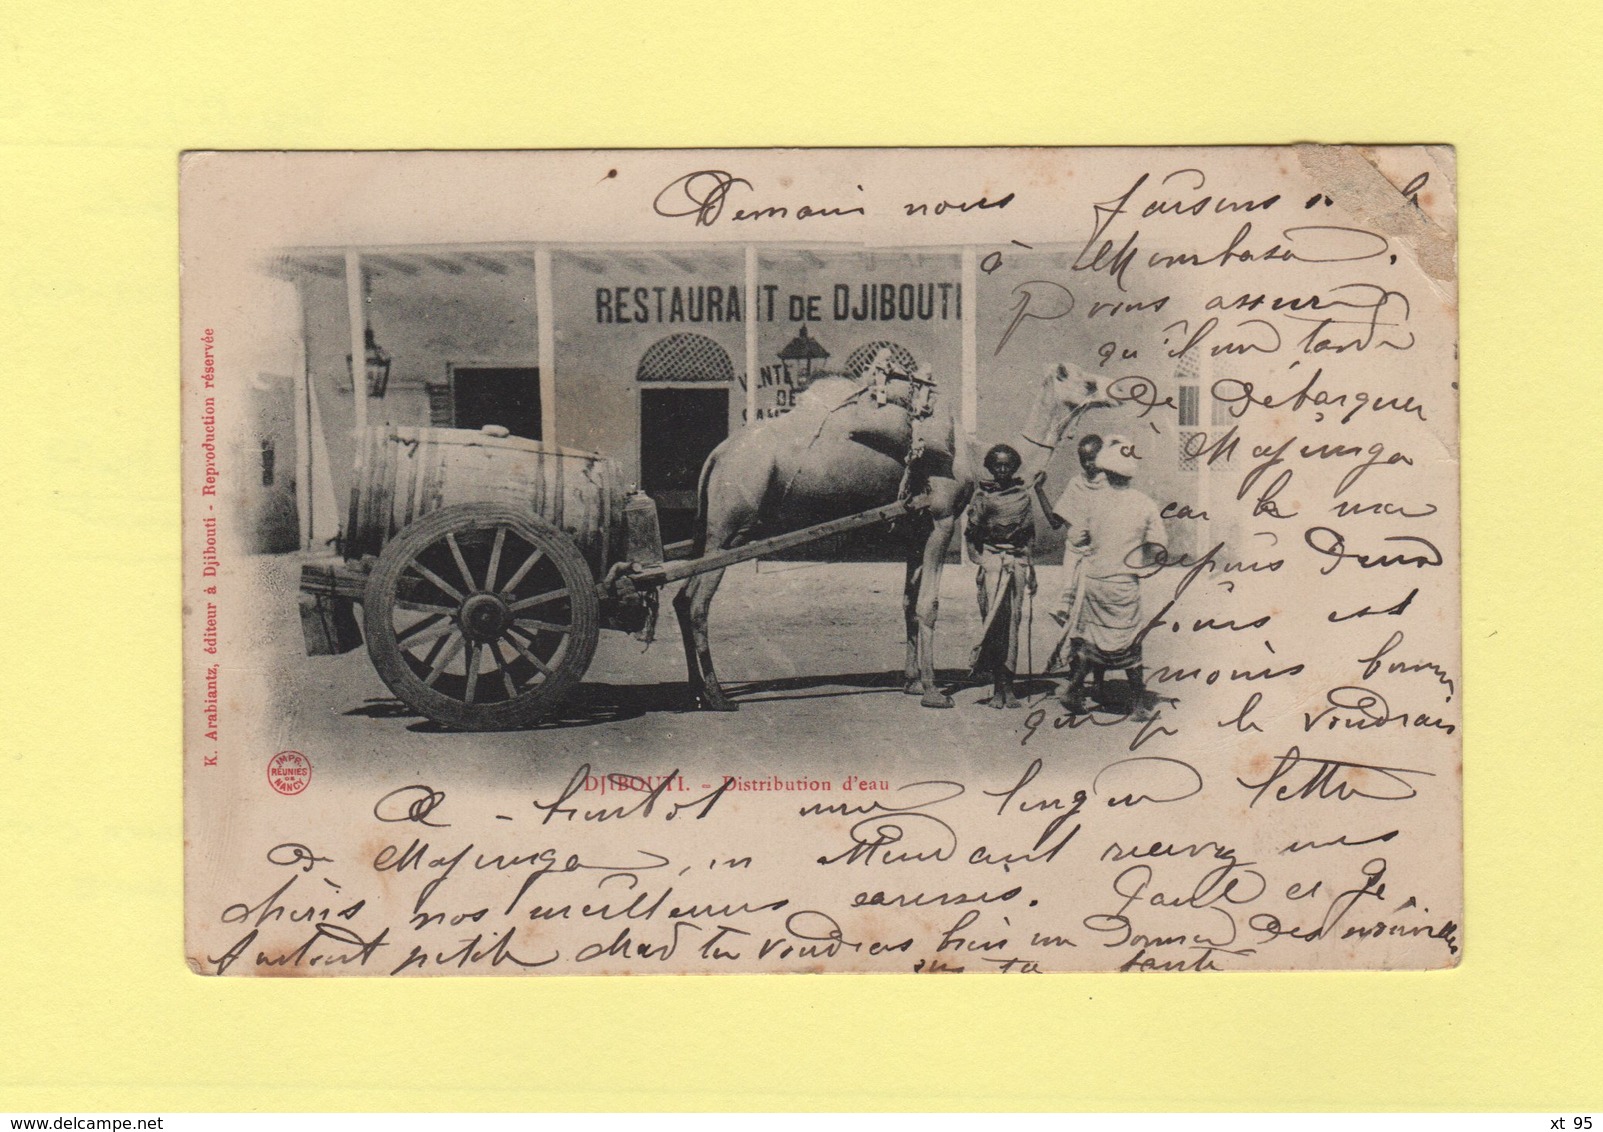 Demain nous faisons
à Mombasa.
vous assure
qu'il me tarde
de débarquer
à Majunga
car la mer
depuis deux
jours est
moins bonne
que je le voudrais
RESTAURANT DE DJIBOUTI
VENTE
DE
K. Arabiantz, éditeur à Djibouti - Reproduction réservée
IMPR.
RÉUNIES
DE
NANCY
DJIBOUTI. - Distribution d'eau
A - bientôt une longue lettre
de Majunga, en attendant recevez mes
chéris nos meilleures caresses. Paul et
Surtout petite Mad tu voudras bien me donner des nouvelles
de ta santé
delcampe.net
xt 95